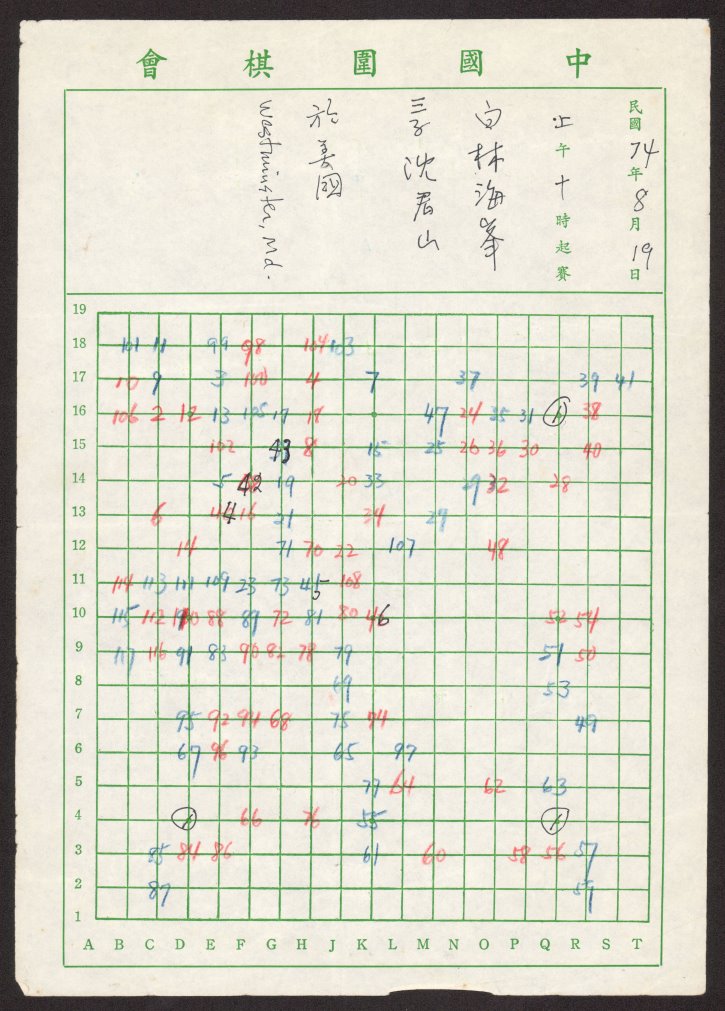 中國圍棋會
民國74年8月19日
上午十時起賽
白林海峯
三子沈君山
於美國
Westminster, Md.
19
18 101 11 99 98 104 103
17 10 9 3 100 4 7 37 39 41
16 106 2 12 13 105 17 18 47 24 35 31 38
15 102 43 8 15 25 26 36 30 40
14 5 42 19 20 33 29 32 28
13 6 44 16 21 34
12 14 71 70 22 107 48
11 114 113 111 109 23 73 45 108
10 115 112 110 88 89 72 81 80 46 52 54
9 117 116 91 83 90 82 78 79 51 50
8 69 53
7 95 92 94 68 75 74 49
6 67 96 93 65 97
5 77 64 62 63
4 66 76 55
3 85 84 86 61 60 58 56 57
2 87 59
1
A B C D E F G H J K L M N O P Q R S T